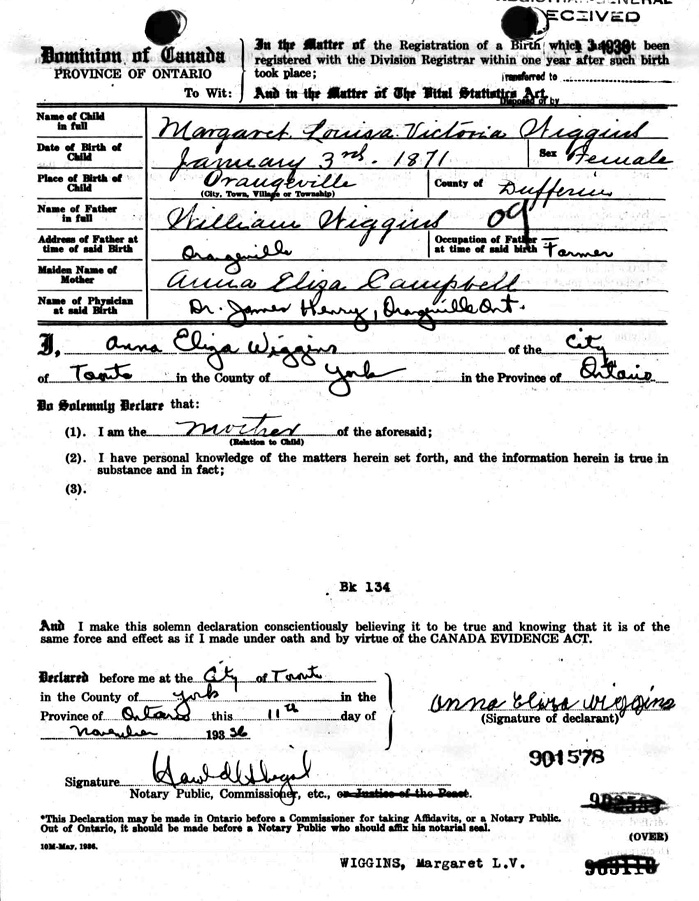 RECEIVED
Dominion of Canada
PROVINCE OF ONTARIO
To Wit:
In the Matter of the Registration of a Birth which not been
registered with the Division Registrar within one year after such birth
took place;
Transferred to
And in the Matter of The Vital Statistics Act.
Disposed of by
Name of Child in full Margaret Louisa Victoria Wiggins
Date of Birth of Child January 3rd. 1871 Sex Female
Place of Birth of Child Orangeville County of Dufferin
(City, Town, Village or Township)
Name of Father in full William Wiggins
Address of Father at time of said Birth Orangeville Occupation of Father at time of said birth Farmer
Maiden Name of Mother Anna Eliza Campbell
Name of Physician at said Birth Dr. James Henry, Orangville Ont.
I, Anna Eliza Wiggins of the City
of Toronto in the County of York in the Province of Ontario
Do Solemnly Declare that:
(1). I am the Mother of the aforesaid;
(Relation to Child)
(2). I have personal knowledge of the matters herein set forth, and the information herein is true in
substance and in fact;
(3).
Bk 134
And I make this solemn declaration conscientiously believing it to be true and knowing that it is of the
same force and effect as if I made under oath and by virtue of the CANADA EVIDENCE ACT.
Declared before me at the City of Toronto
in the County of York in the
Province of Ontario this 11th day of
November 193 36
Anna Eliza Wiggins
(Signature of declarant)
901578
Signature
Notary Public, Commissioner, etc., or Justice of the Peace.
*This Declaration may be made in Ontario before a Commissioner for taking Affidavits, or a Notary Public.
Out of Ontario, it should be made before a Notary Public who should affix his notarial seal.
(OVER)
10M-May, 1936.
WIGGINS, Margaret L.V.